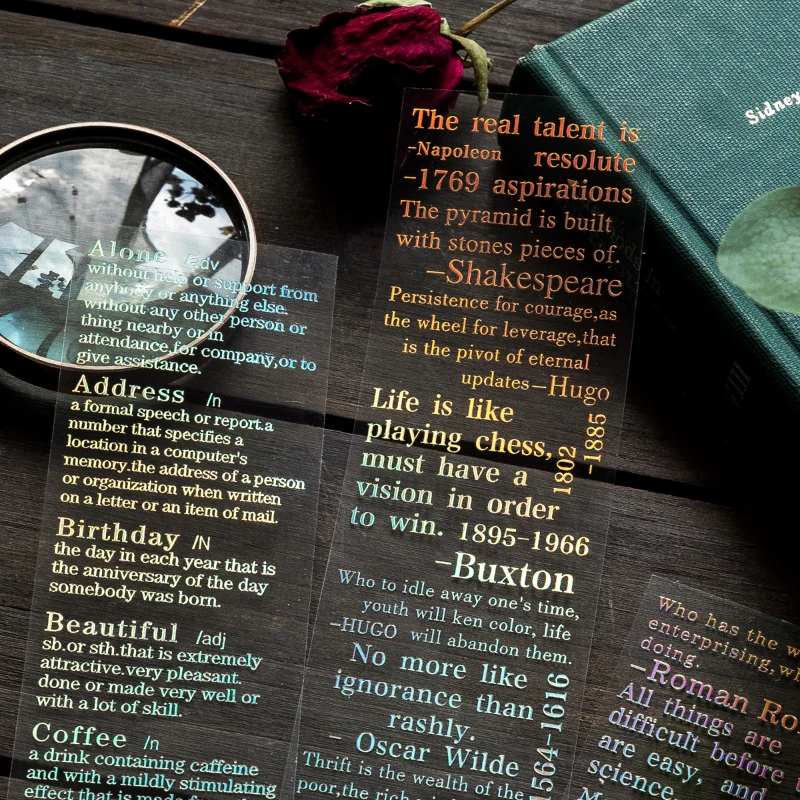 Sidney
Alone /adv
without help or support from
anybody or anything else.
without any other person or
thing nearby or in
attendance,for company,or to
give assistance.
Address /n
a formal speech or report.a
number that specifies a
location in a computer's
memory.the address of a person
or organization when written
on a letter or an item of mail.
Birthday /N
the day in each year that is
the anniversary of the day
somebody was born.
Beautiful /adj
sb.or sth.that is extremely
attractive.very pleasant.
done or made very well or
with a lot of skill.
Coffee /n
a drink containing caffeine
and with a mildly stimulating
effect that is made from
The real talent is
-Napoleon resolute
-1769 aspirations
The pyramid is built
with stones pieces of.
-Shakespeare
Persistence for courage,as
the wheel for leverage,that
is the pivot of eternal
updates-Hugo
1802
-1885
Life is like
playing chess,
must have a
vision in order
to win. 1895-1966
-Buxton
Who to idle away one's time,
youth will ken color, life
-HUGO will abandon them.
No more like
ignorance than
rashly.
- Oscar Wilde
1564-1616
Thrift is the wealth of the
poor,the rich
Who has the
enterprising,
doing.
-Roman
All things are
difficult before
are easy, and
science